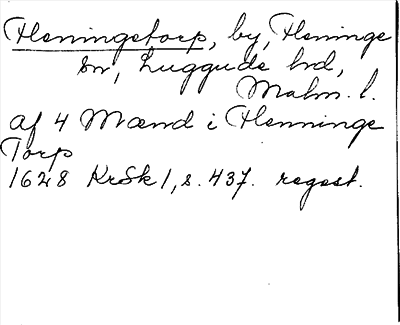 Fleningetorp, by, Fleninge
sn, Luggude hrd,
Malm. l.
af 4 Mænd i Flenninge
Torp
1628 KrSk 1, s. 437. regest.